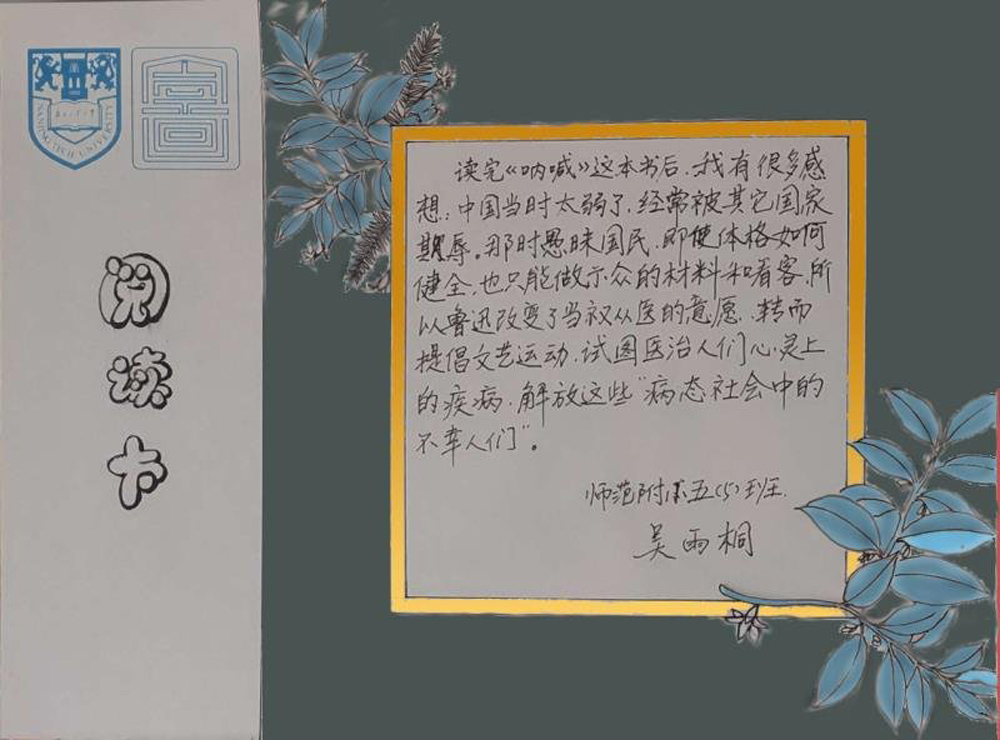 NANJING TECH UNIVERSITY
阅读卡
读完《呐喊》这本书后,我有很多感
想:中国当时太弱了,经常被其它国家
欺辱。那时愚昧国民,即使体格如何
健全,也只能做示众的材料和看客,所
以鲁迅改变了当初从医的意愿,转而
提倡文艺运动,试图医治人们心灵上
的疾病,解放这些“病态社会中的
不幸人们”。
师范附小五(5)班
吴雨桐